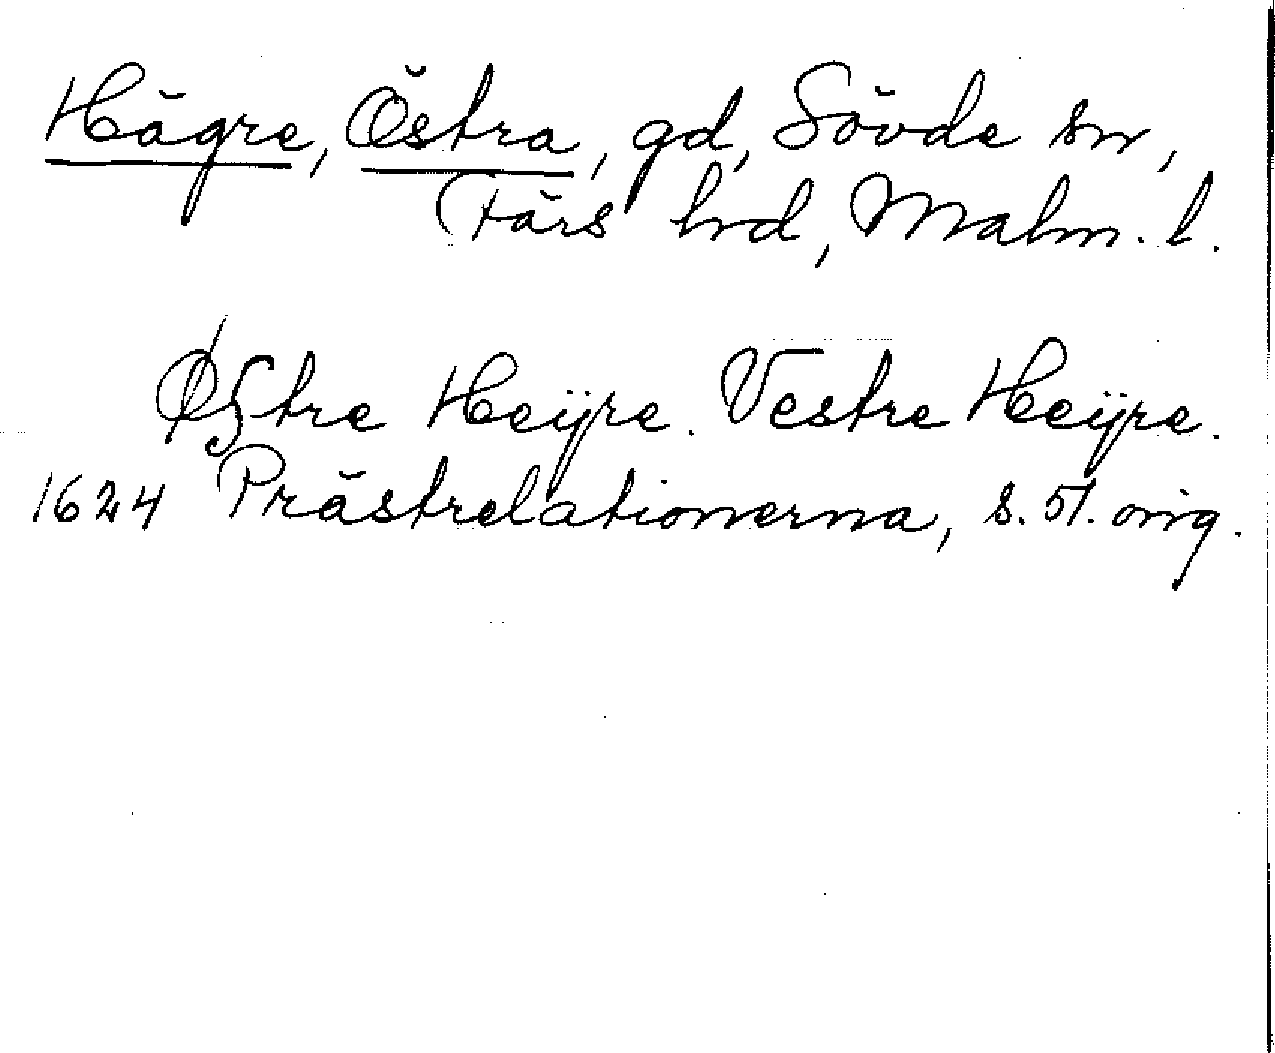 Hägre, Östra, gd, Sövde sn,
Färs hrd, Malm. l.
Østre Heÿre. Vestre Heÿre.
1624 Prästrelationerna, s. 51. orig.